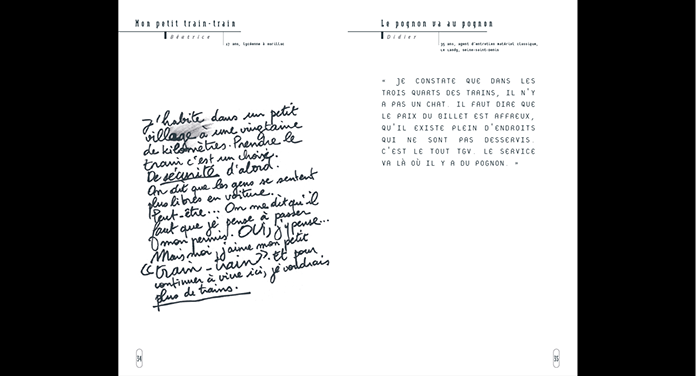 Mon petit train-train
Béatrice
17 ans, lycéenne à aurillac
J'habite dans un petit
village à une vingtaine
de kilomètres. Prendre le
train c'est un choix.
De sécurité d'abord.
On dit que les gens se sentent
plus libres en voiture.
Peut-être... On me dit qu'il
faut que je pense à passer
mon permis. OUI, j'y pense...
Mais moi, j'aime mon petit
« train-train ». Et pour
continuer à vivre ici, je voudrais
plus de trains.
34
Le pognon va au pognon
Didier
35 ans, agent d'entretien matériel classique,
Le Landy, seine-saint-denis
« JE CONSTATE QUE DANS LES
TROIS QUARTS DES TRAINS, IL N'Y
A PAS UN CHAT. IL FAUT DIRE QUE
LE PAIX DU BILLET EST AFFREUX,
QU'IL EXISTE PLEIN D'ENDROITS
QUI NE SONT PAS DESSERVIS.
C'EST LE TOUT TGV. LE SERVICE
VA LÀ OÙ IL Y A DU POGNON. »
35